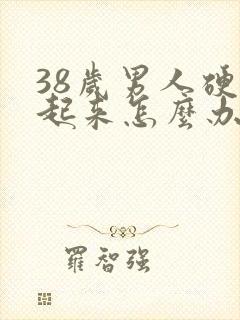 38歲男人硬
起來怎麼办
羅智强